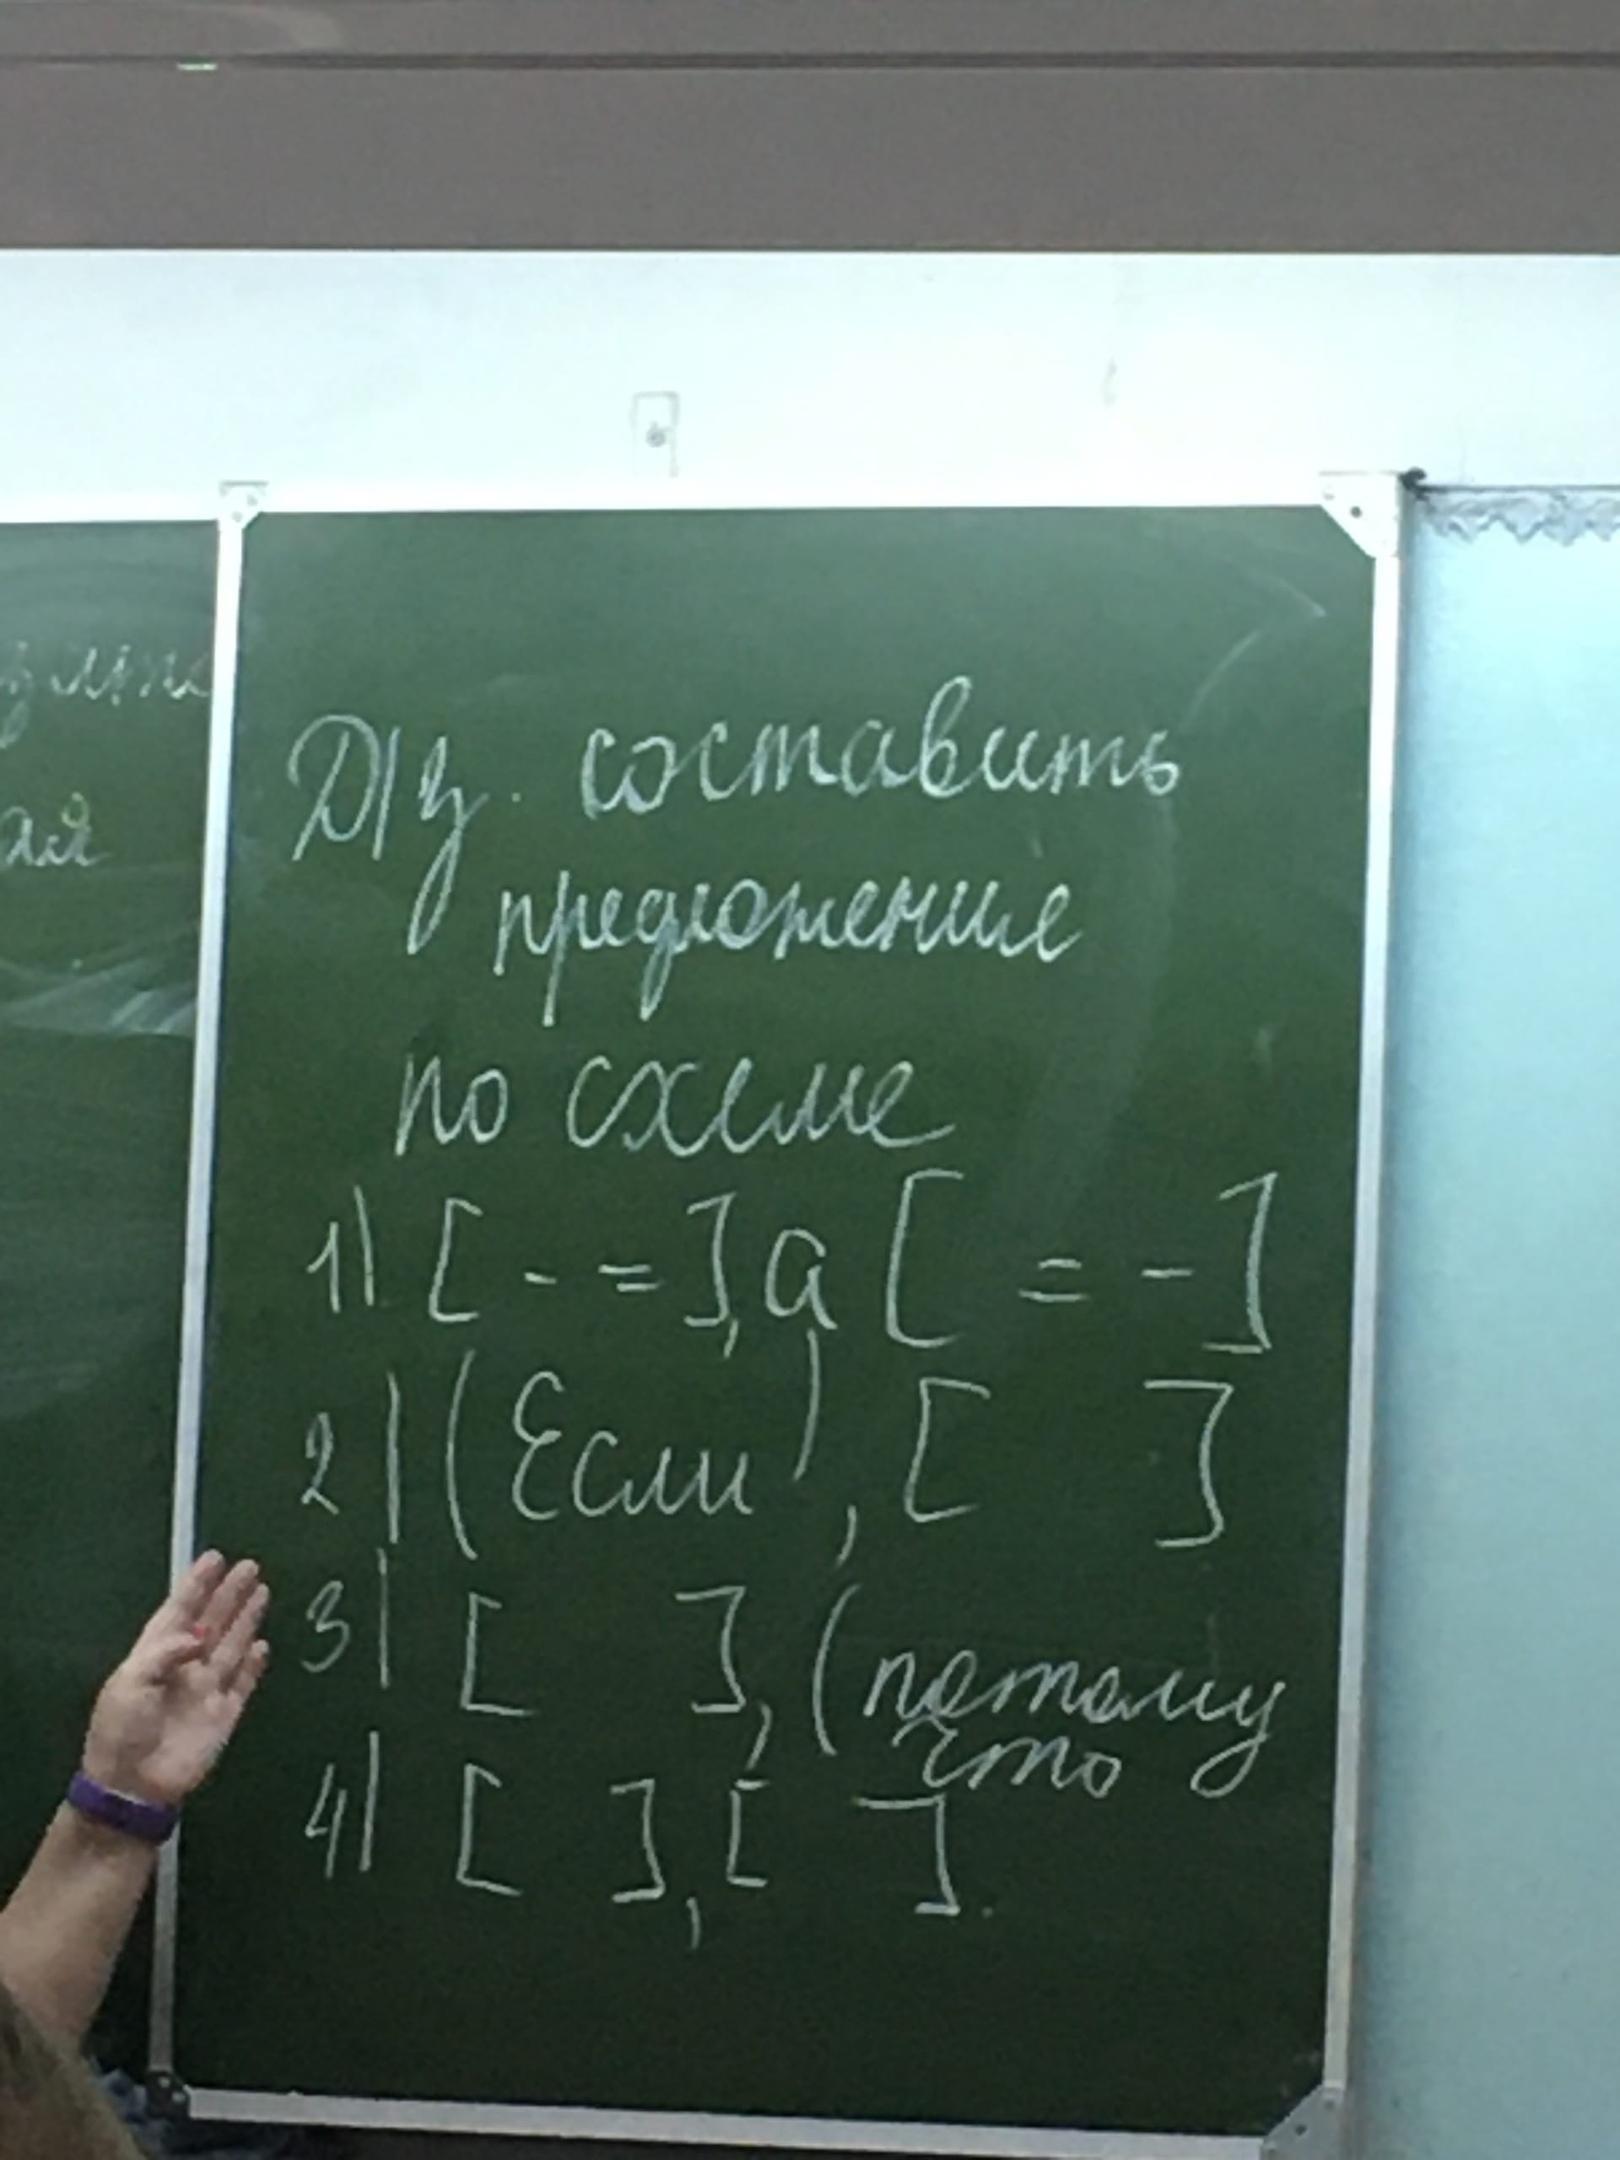 ая
Д/з. составить
предложение
по схеме
1) [ - = ], а [ = - ]
2) (Если), [ ]
3) [ ], (потому
что
4) [ ], [ ].